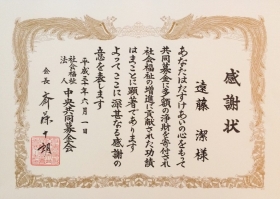 感謝状
遠藤 潔 様
あなたはたすけあいの心をもって
共同募金に多額の浄財を寄付され
社会福祉の増進に貢献された功績
はまことに顕著であります
よってここに深甚なる感謝の
意を表します
平成三十年六月一日
社会福祉法人 中央共同募金会
会長 斎藤十朗